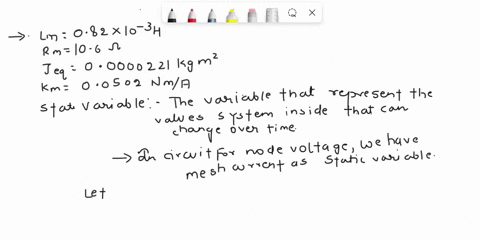 → Lm = 0.82 × 10⁻³ H
Rm = 10.6 Ω
Jeq = 0.0000221 kg m²
Km = 0.0502 Nm/A
Stat variable:- The variable that represent the
values system inside that can
change over time.
→ In circuit for node voltage, we have
mesh current as static variable.
Let